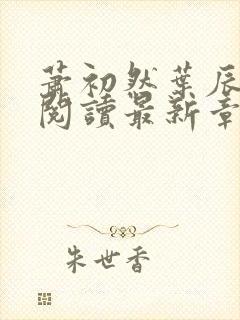 蕭初然葉辰
閱讀最新章
朱世香